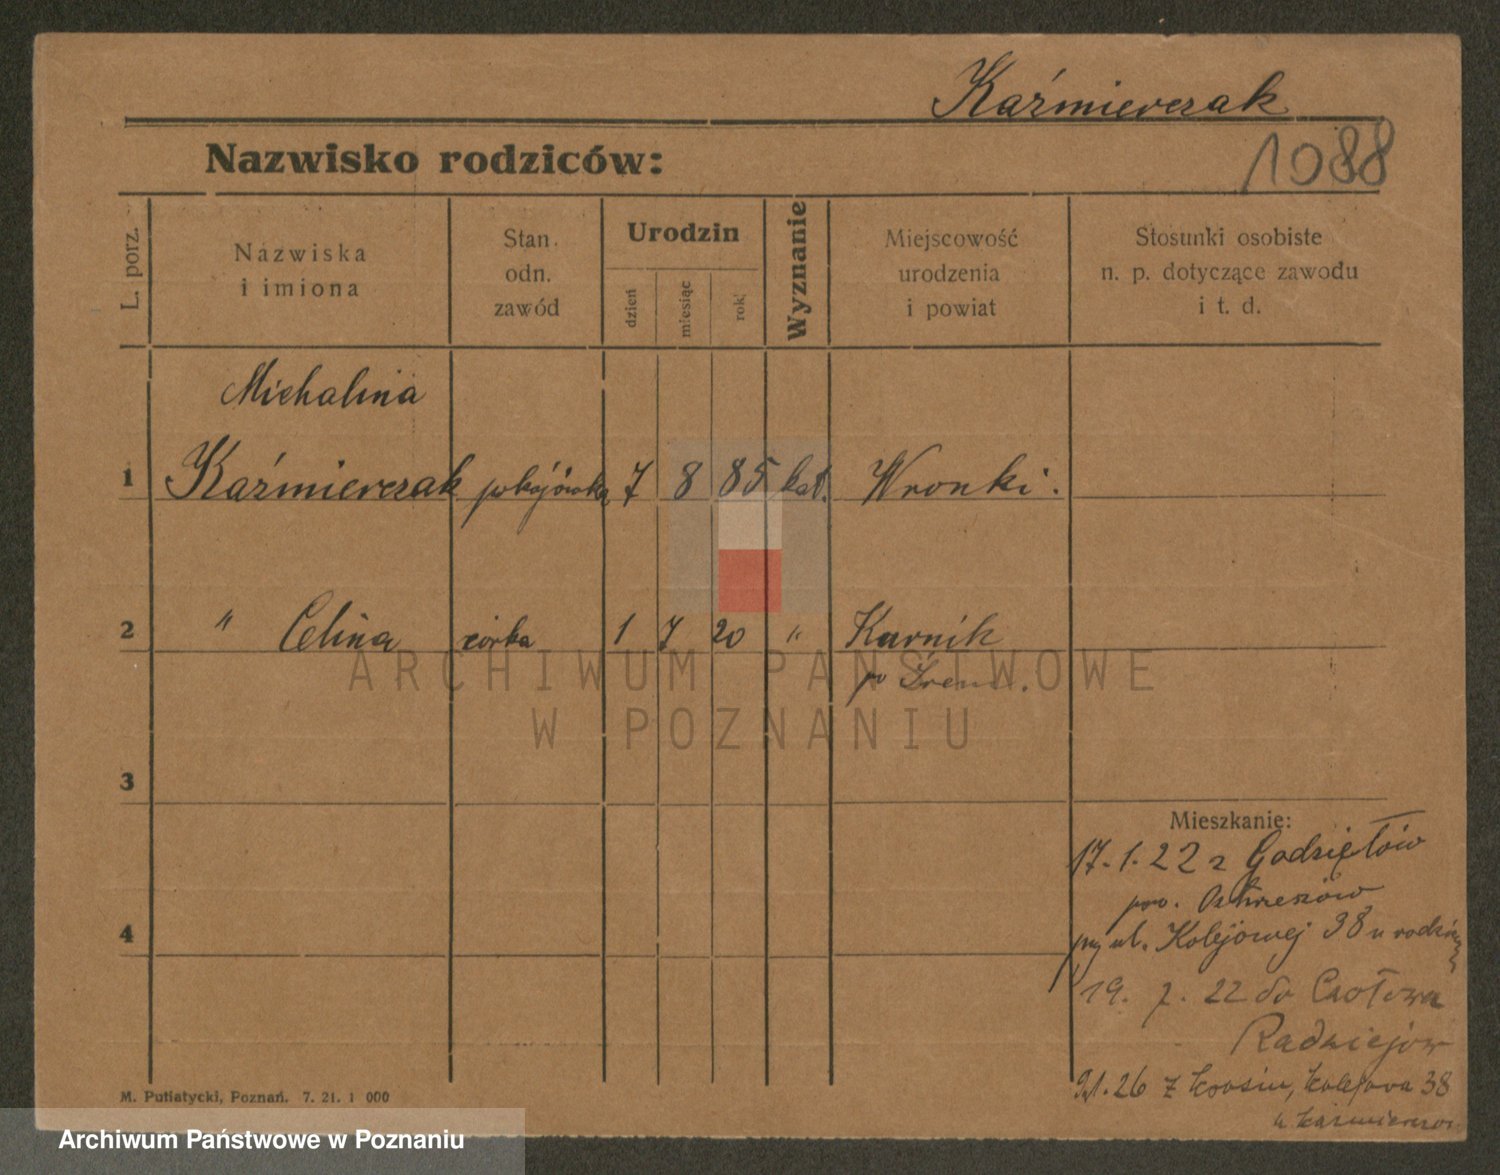 Kaźmierczak
Nazwisko rodziców:
1088
L. porz.
Nazwiska
i imiona
Stan.
odn.
zawód
Urodzin
dzień
miesiąc
rok
Wyznanie
Miejscowość
urodzenia
i powiat
Stosunki osobiste
n. p. dotyczące zawodu
i t. d.
Michalina
1 Kaźmierczak pokojówka 7 8 85 kat. Wronki.
2 " Celina córka 1 7 20 " Kurnik
po Śrem.
3
Mieszkanie:
17.1.22 z Godziętów
pow. Ostrzeszów
przy ul. Kolejowej 38 u
4
19. 7. 22 do
Radziejów
21.26 z Kolejowa 38
u
M. Putiatycki, Poznań. 7. 21. 1 000
ARCHIWUM PAŃSTWOWE
W POZNANIU
Archiwum Państwowe w Poznaniu